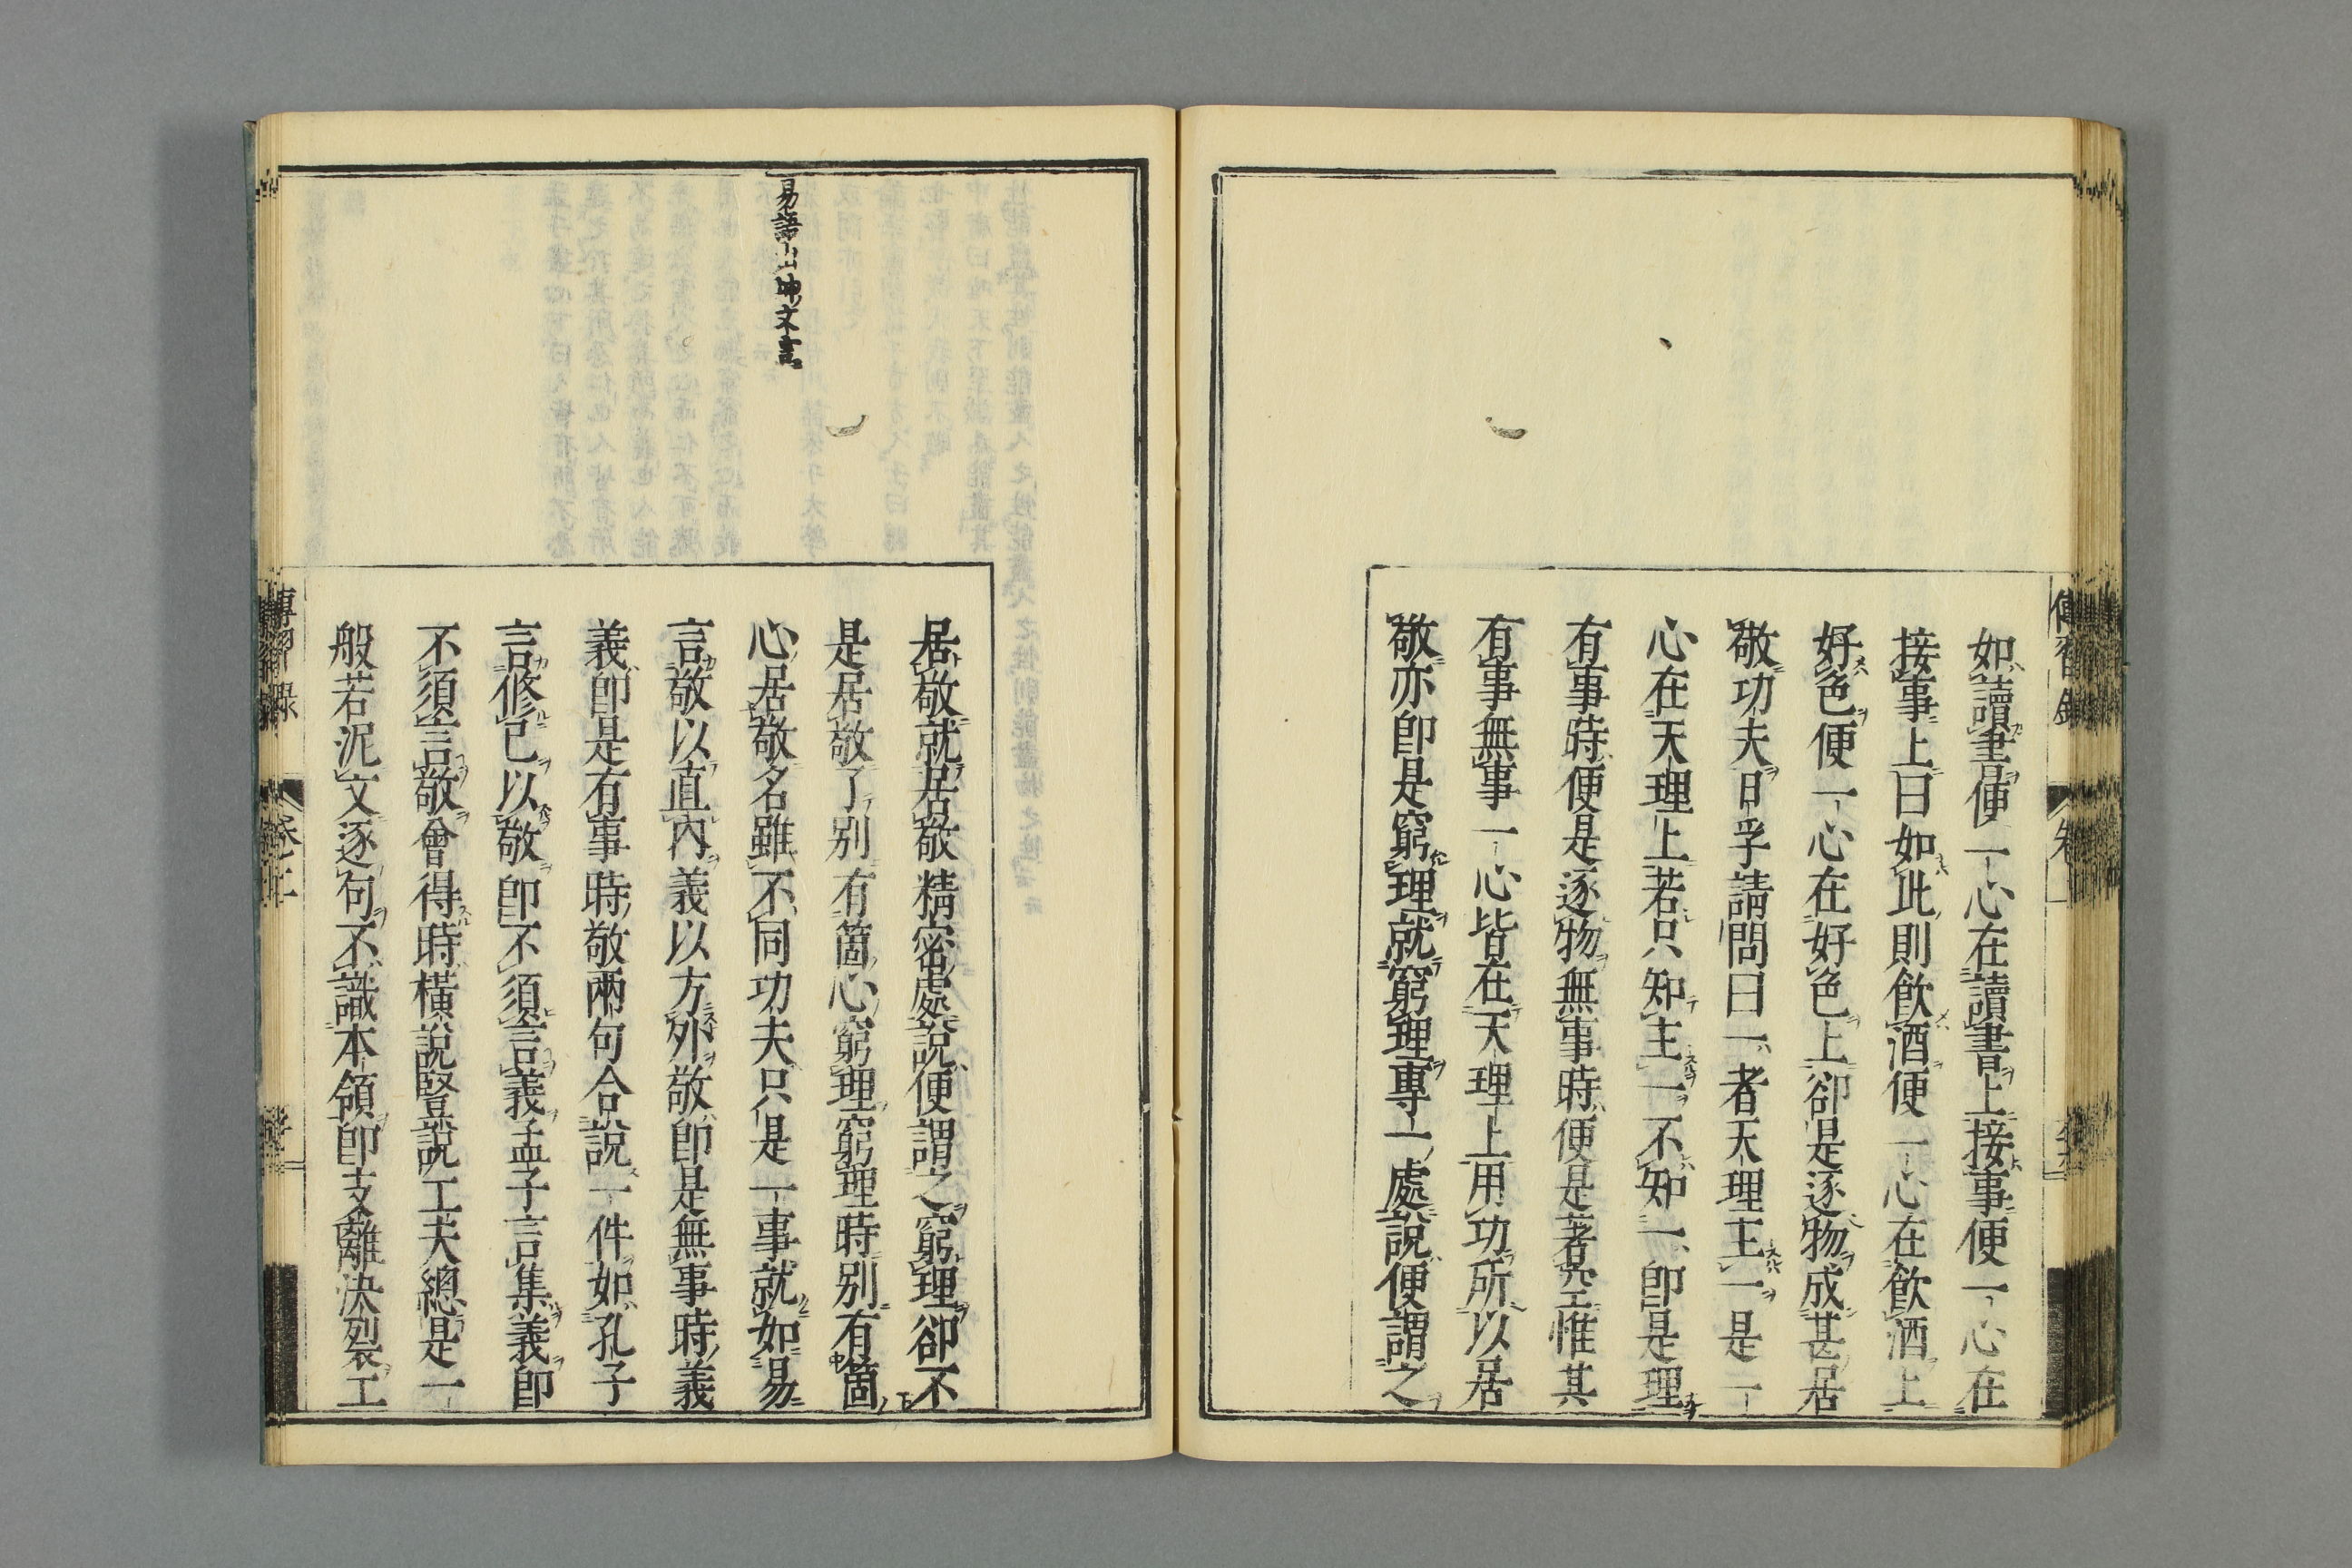 如讀書便一心在讀書上接事便一心在
接事上曰如此則飮酒便一心在飮酒上
好色便一心在好色上卻是逐物成甚居
敬功夫日孚請問曰一者天理主一是一
心在天理上若只知主一不知一卽是理
有事時便是逐物無事時便是著空惟其
有事無事一心皆在天理上用功所以居
敬亦卽是窮理就窮理專一處說便謂之
易語出坤文言
居敬就居敬精密處說便謂之窮理卻不
是居敬了別有箇心窮理窮理時別有箇
心居敬名雖不同功夫只是一事就如易
言敬以直內義以方外敬卽是無事時義
義卽是有事時敬兩句合說一件如孔子
言修己以敬卽不須言義孟子言集義卽
不須言敬會得時橫說豎說工夫總是一
般若泥文逐句不識本領卽支離决裂工